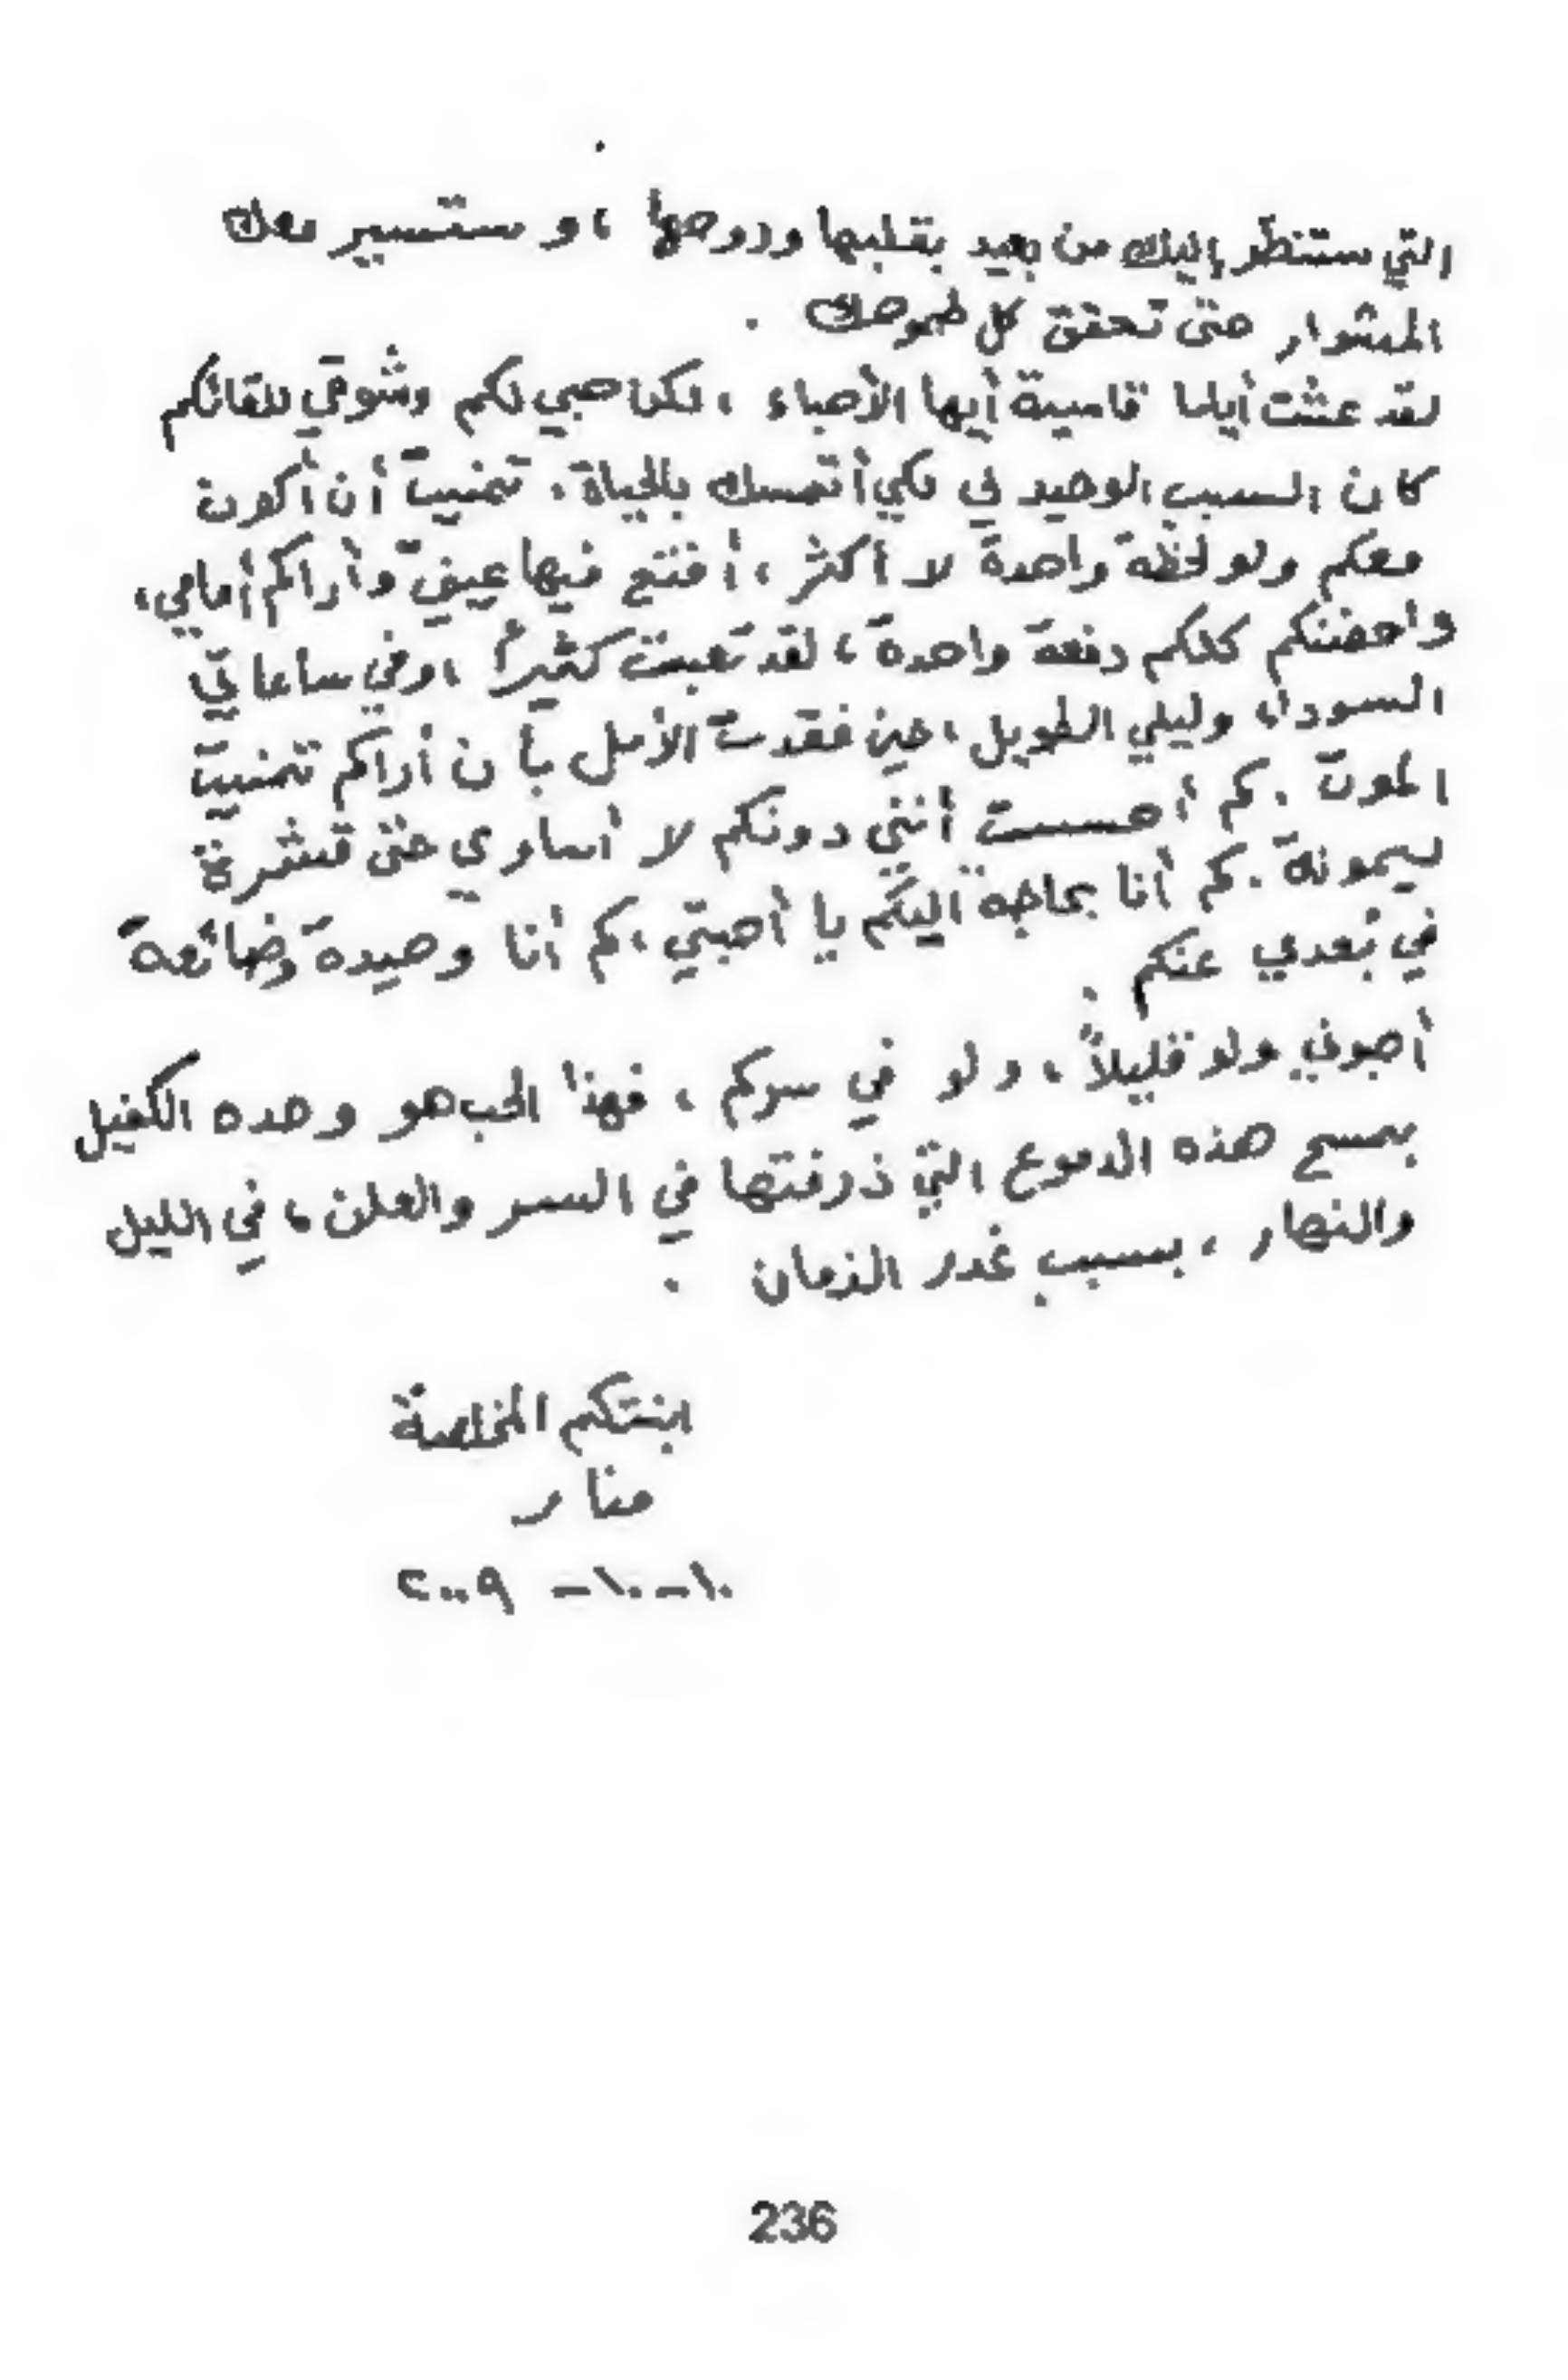 التي ستنظر إليك من بعيد بقلبها وروحها ، وستسير معك
المشوار حتى تحقق كل طموحك .
لقد عشت أياما قاسية أيها الأحباء ، لكن حبي لكم وشوقي للقائكم
كان السبب الوحيد لي لكي أتمسك بالحياة . تمنيت أن أكون
معكم ولو لحظة واحدة لا أكثر ، أفتح فيها عينيّ وأراكم أمامي ،
واحضنكم كلكم دفعة واحدة ، لقد تعبت كثيراً ، وفي ساعاتي
السوداء وليلي الطويل ، حين فقدت الأمل بأن أراكم تمنيت
الموت . كم أحسست أنني دونكم لا أساوي حتى قشرة
ليمونة . كم أنا بحاجة اليكم يا أحبتي ، كم أنا وحيدة وضائعة
في بُعدي عنكم .
أحبوني ولو قليلاً ، ولو في سركم ، فهذا الحب هو وحده الكفيل
بمسح هذه الدموع التي ذرفتها في السر والعلن ، في الليل
والنهار ، بسبب غدر الزمان .
ابنتكم المخلصة
منار
١٠-١٠-٢٠٠٩
236